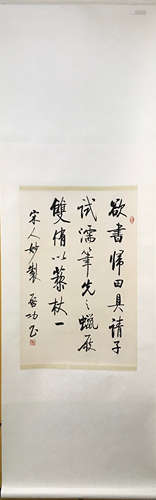 欲書歸田具請子
試濡筆先之蠟屐
雙侑以藜杖一
宋人妙製 啓功書